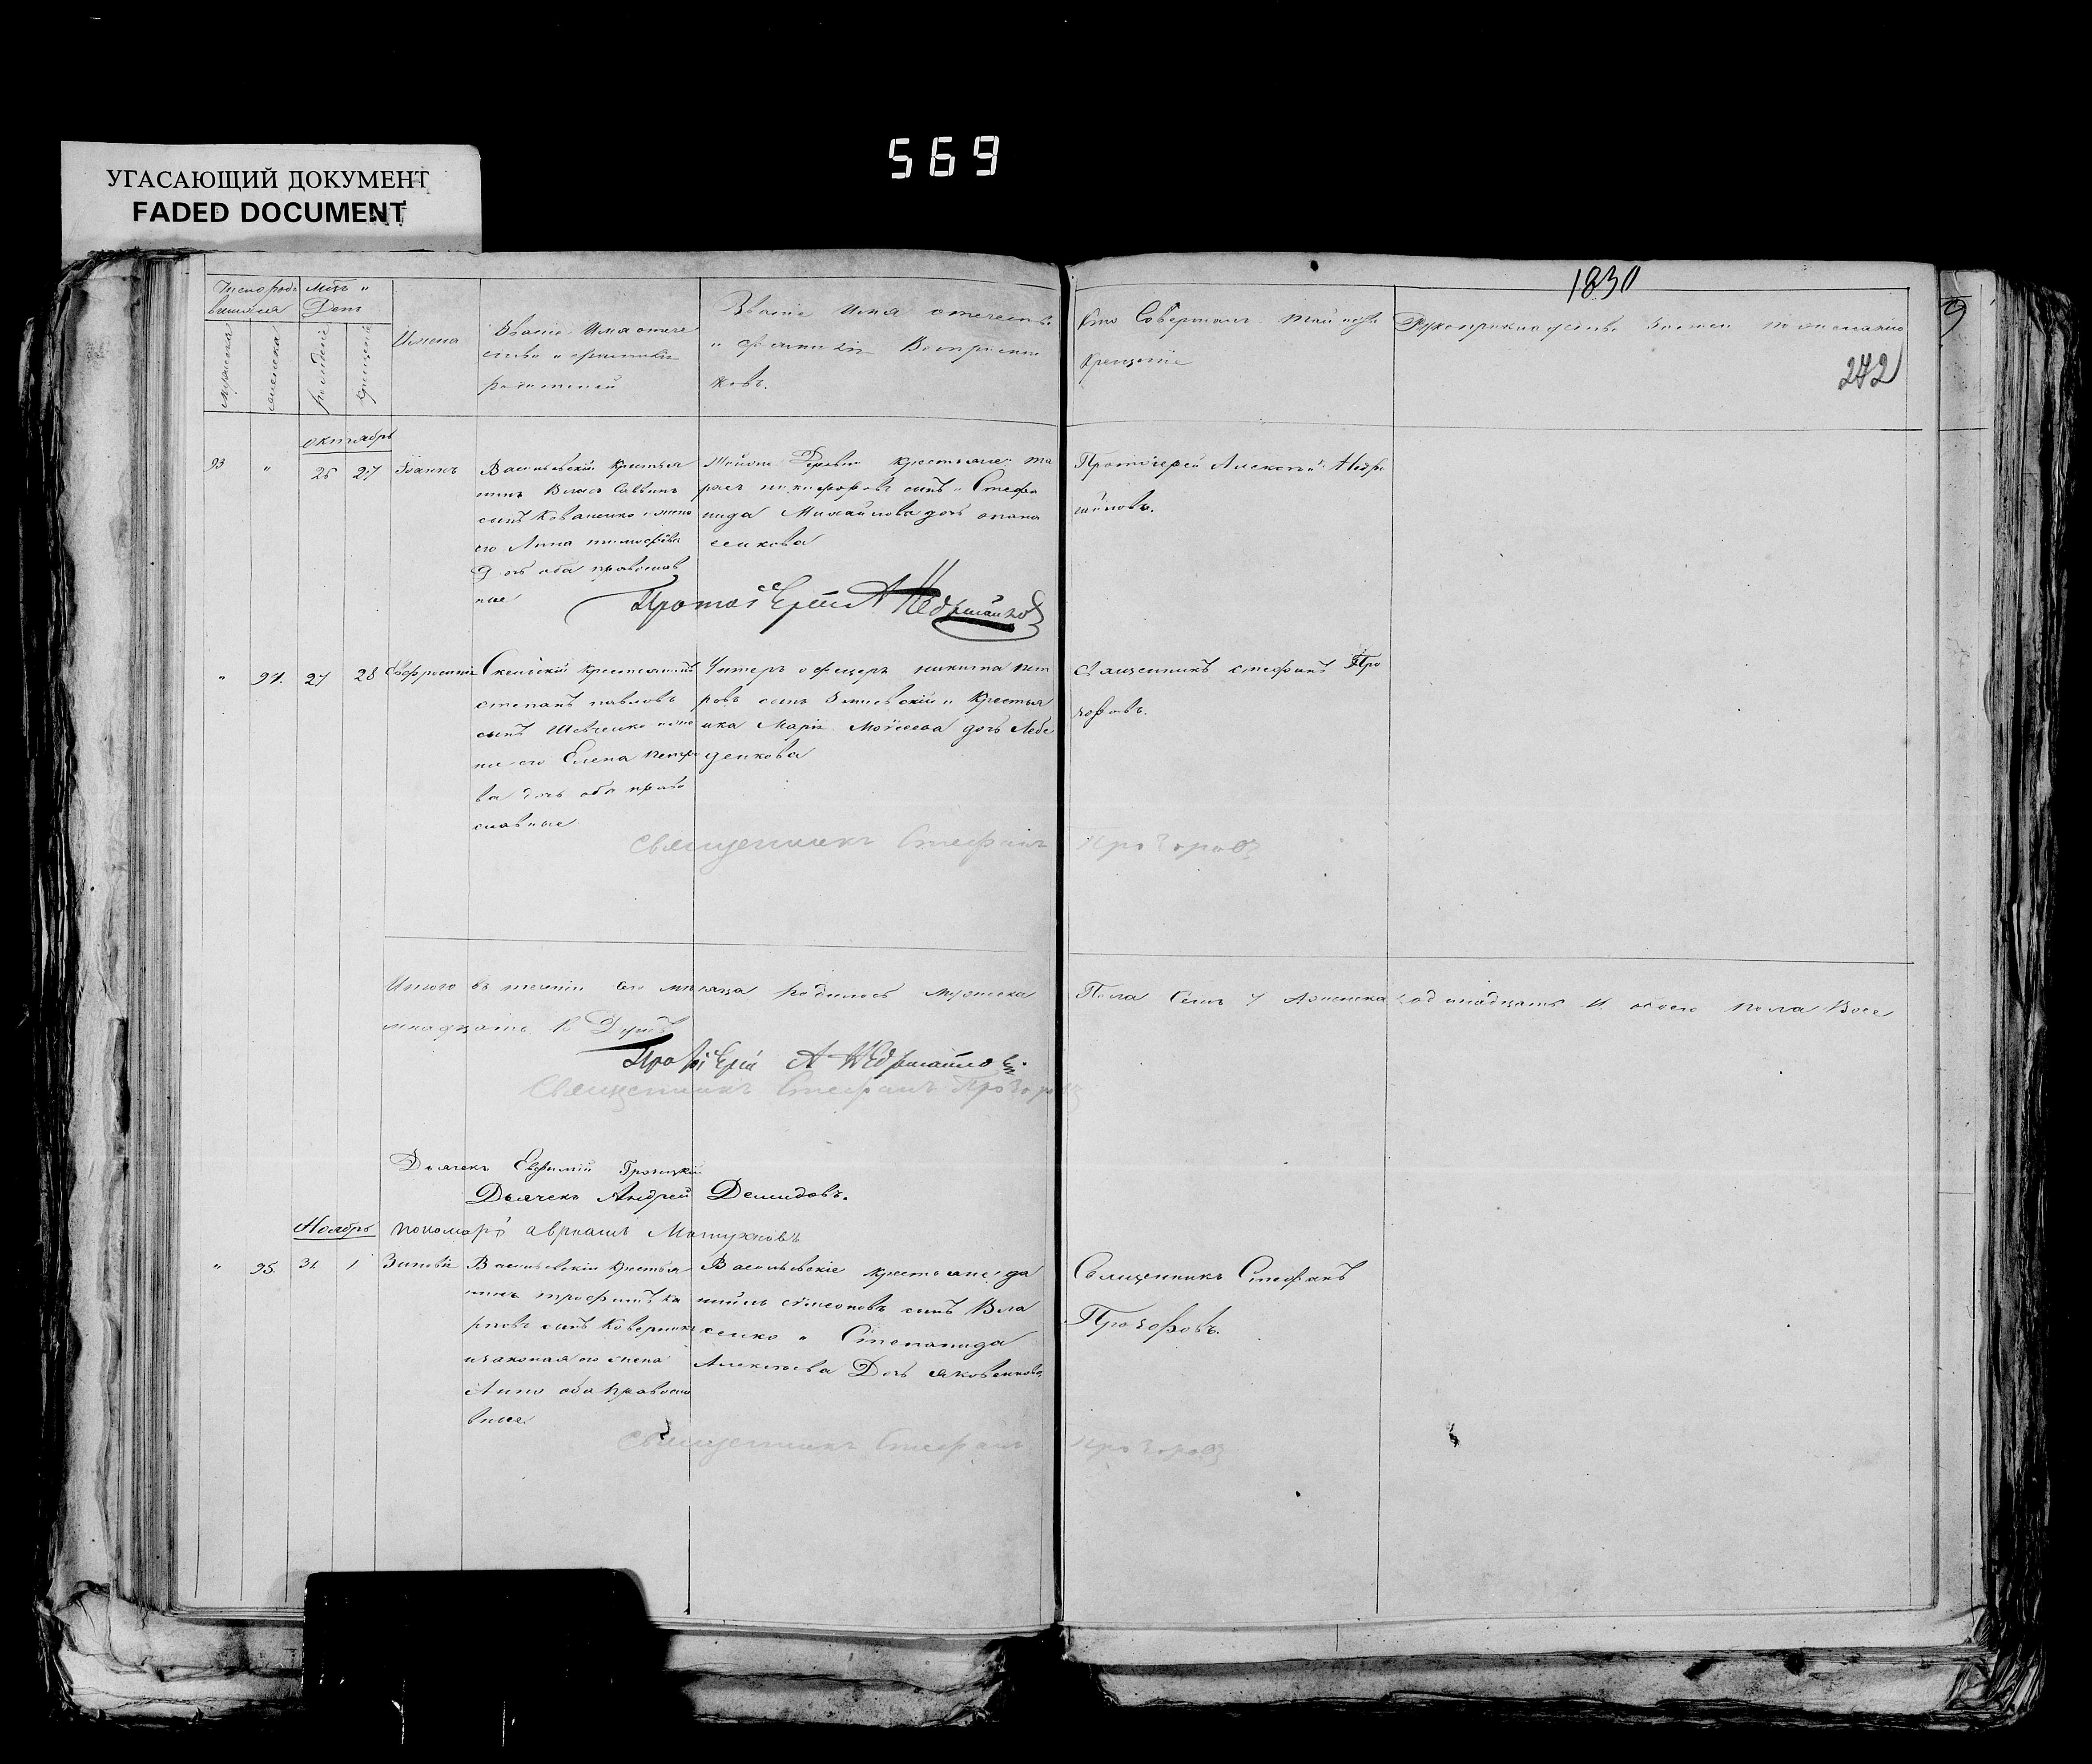 569
УГАСАЮЩИЙ ДОКУМЕНТ
FADED DOCUMENT
1830
242
Мсць и
День
мужеска
женска
рождение
крещение
Имена
Звание Имя отече
ство и фамилия
родителей
Звание Имя отечество
и фамилия Восприемни
ковъ.
Кто Совершалъ таинство
Крещение
Рукоприкладство
по желанию
октябрь
93 " 26 27 Іоаннъ
Васильевский крестья
нинъ Власъ Саввинъ
сынъ Коваленко и жена
его Анна тимофеева
дочь оба православ
ные
Деревни крестьяне: та
расъ никифоровъ сынъ и Стефа
нида Михайлова дочь
Протоіерей Алексей
Протоіерей А
" 94. 27 28
крестьянинъ
степанъ павловъ
сынъ Шевченко и же
на его Елена петро
ва дочь оба право
славные
Унтеръ офицеръ никита пет
ровъ сынъ и крестья
нка Марія Моисеева дочь Лебе
денкова
Священникъ стефанъ Про
зоровъ.
Священникъ Стефанъ Прозоровъ
Итого въ течении сего месяца родилось мужеска Пола Семь 7 женска одинадцать 11 обоего пола Восе
мнадцать 18 Душъ
Протоіерей А
Священникъ Стефанъ Прозоровъ
Дьячекъ Евфимий
Дьячекъ Андрей Демидовъ.
Ноябрь
пономарь
" 95. 31. 1 Зиновія
Васильевский крестья
нинъ трофимъ ка
рповъ сынъ
и законная его жена
Анна оба православ
вные
Васильевские крестьяне: да
ниилъ симеоновъ сынъ Вла
сенко и Степанида
Алексеева Дочь яковенкова
Священникъ Стефанъ
Прозоровъ.
Священникъ Стефанъ Прозоровъ